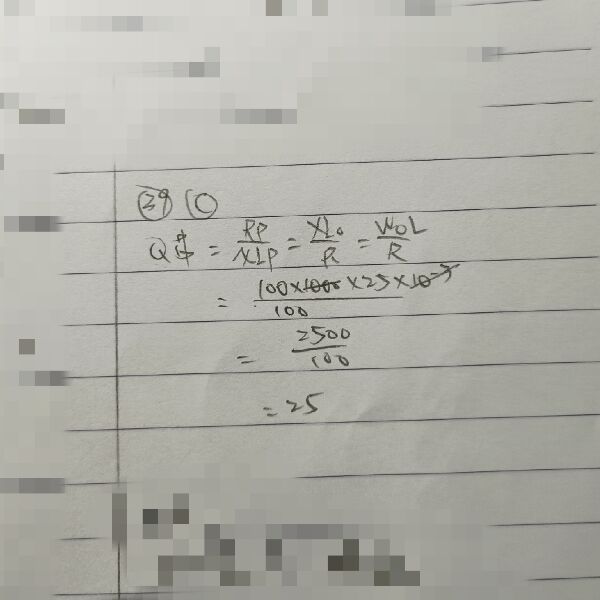 39 C
Q = RP/XLP = XL0/R = W0L/R
= 100×1000×25×10^-3/100
= 2500/100
= 25